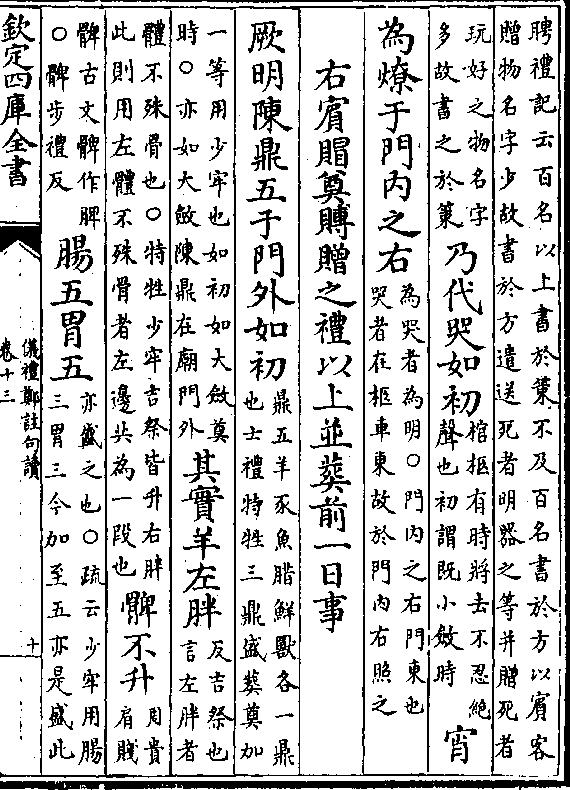 聘禮記云百名以上書於䇿不及百名書於方以賓客
贈物名字少故書於方遣送死者明器之等并贈死者
玩好之物名字
多故書之於䇿
乃代哭如初
棺柩有時將去不忍絶
聲也初謂既小斂時
宵
為燎于門内之右
為哭者為明○門内之右門東也
哭者在柩車東故於門内右照之
右賓賵奠賻贈之禮以上並葬前一日事
厥明陳鼎五于門外如初
鼎五羊豕魚腊鮮獸各一鼎
也士禮特牲三鼎盛葬奠加
一等用少牢也如初如大斂奠
時○亦如大斂陳鼎在廟門外
其實羊左胖
反吉祭也
言左胖者
體不殊骨也○特牲少牢吉祭皆升右胖
此則用左體不殊骨者左邊共為一段也
髀不升
周貴
肩賤
髀古文髀作脾
○髀步禮反
腸五胃五
亦盛之也○疏云少牢用腸
三胃三今加至五亦是盛此
欽定四庫全書
儀禮鄭註句讀
卷十三
十